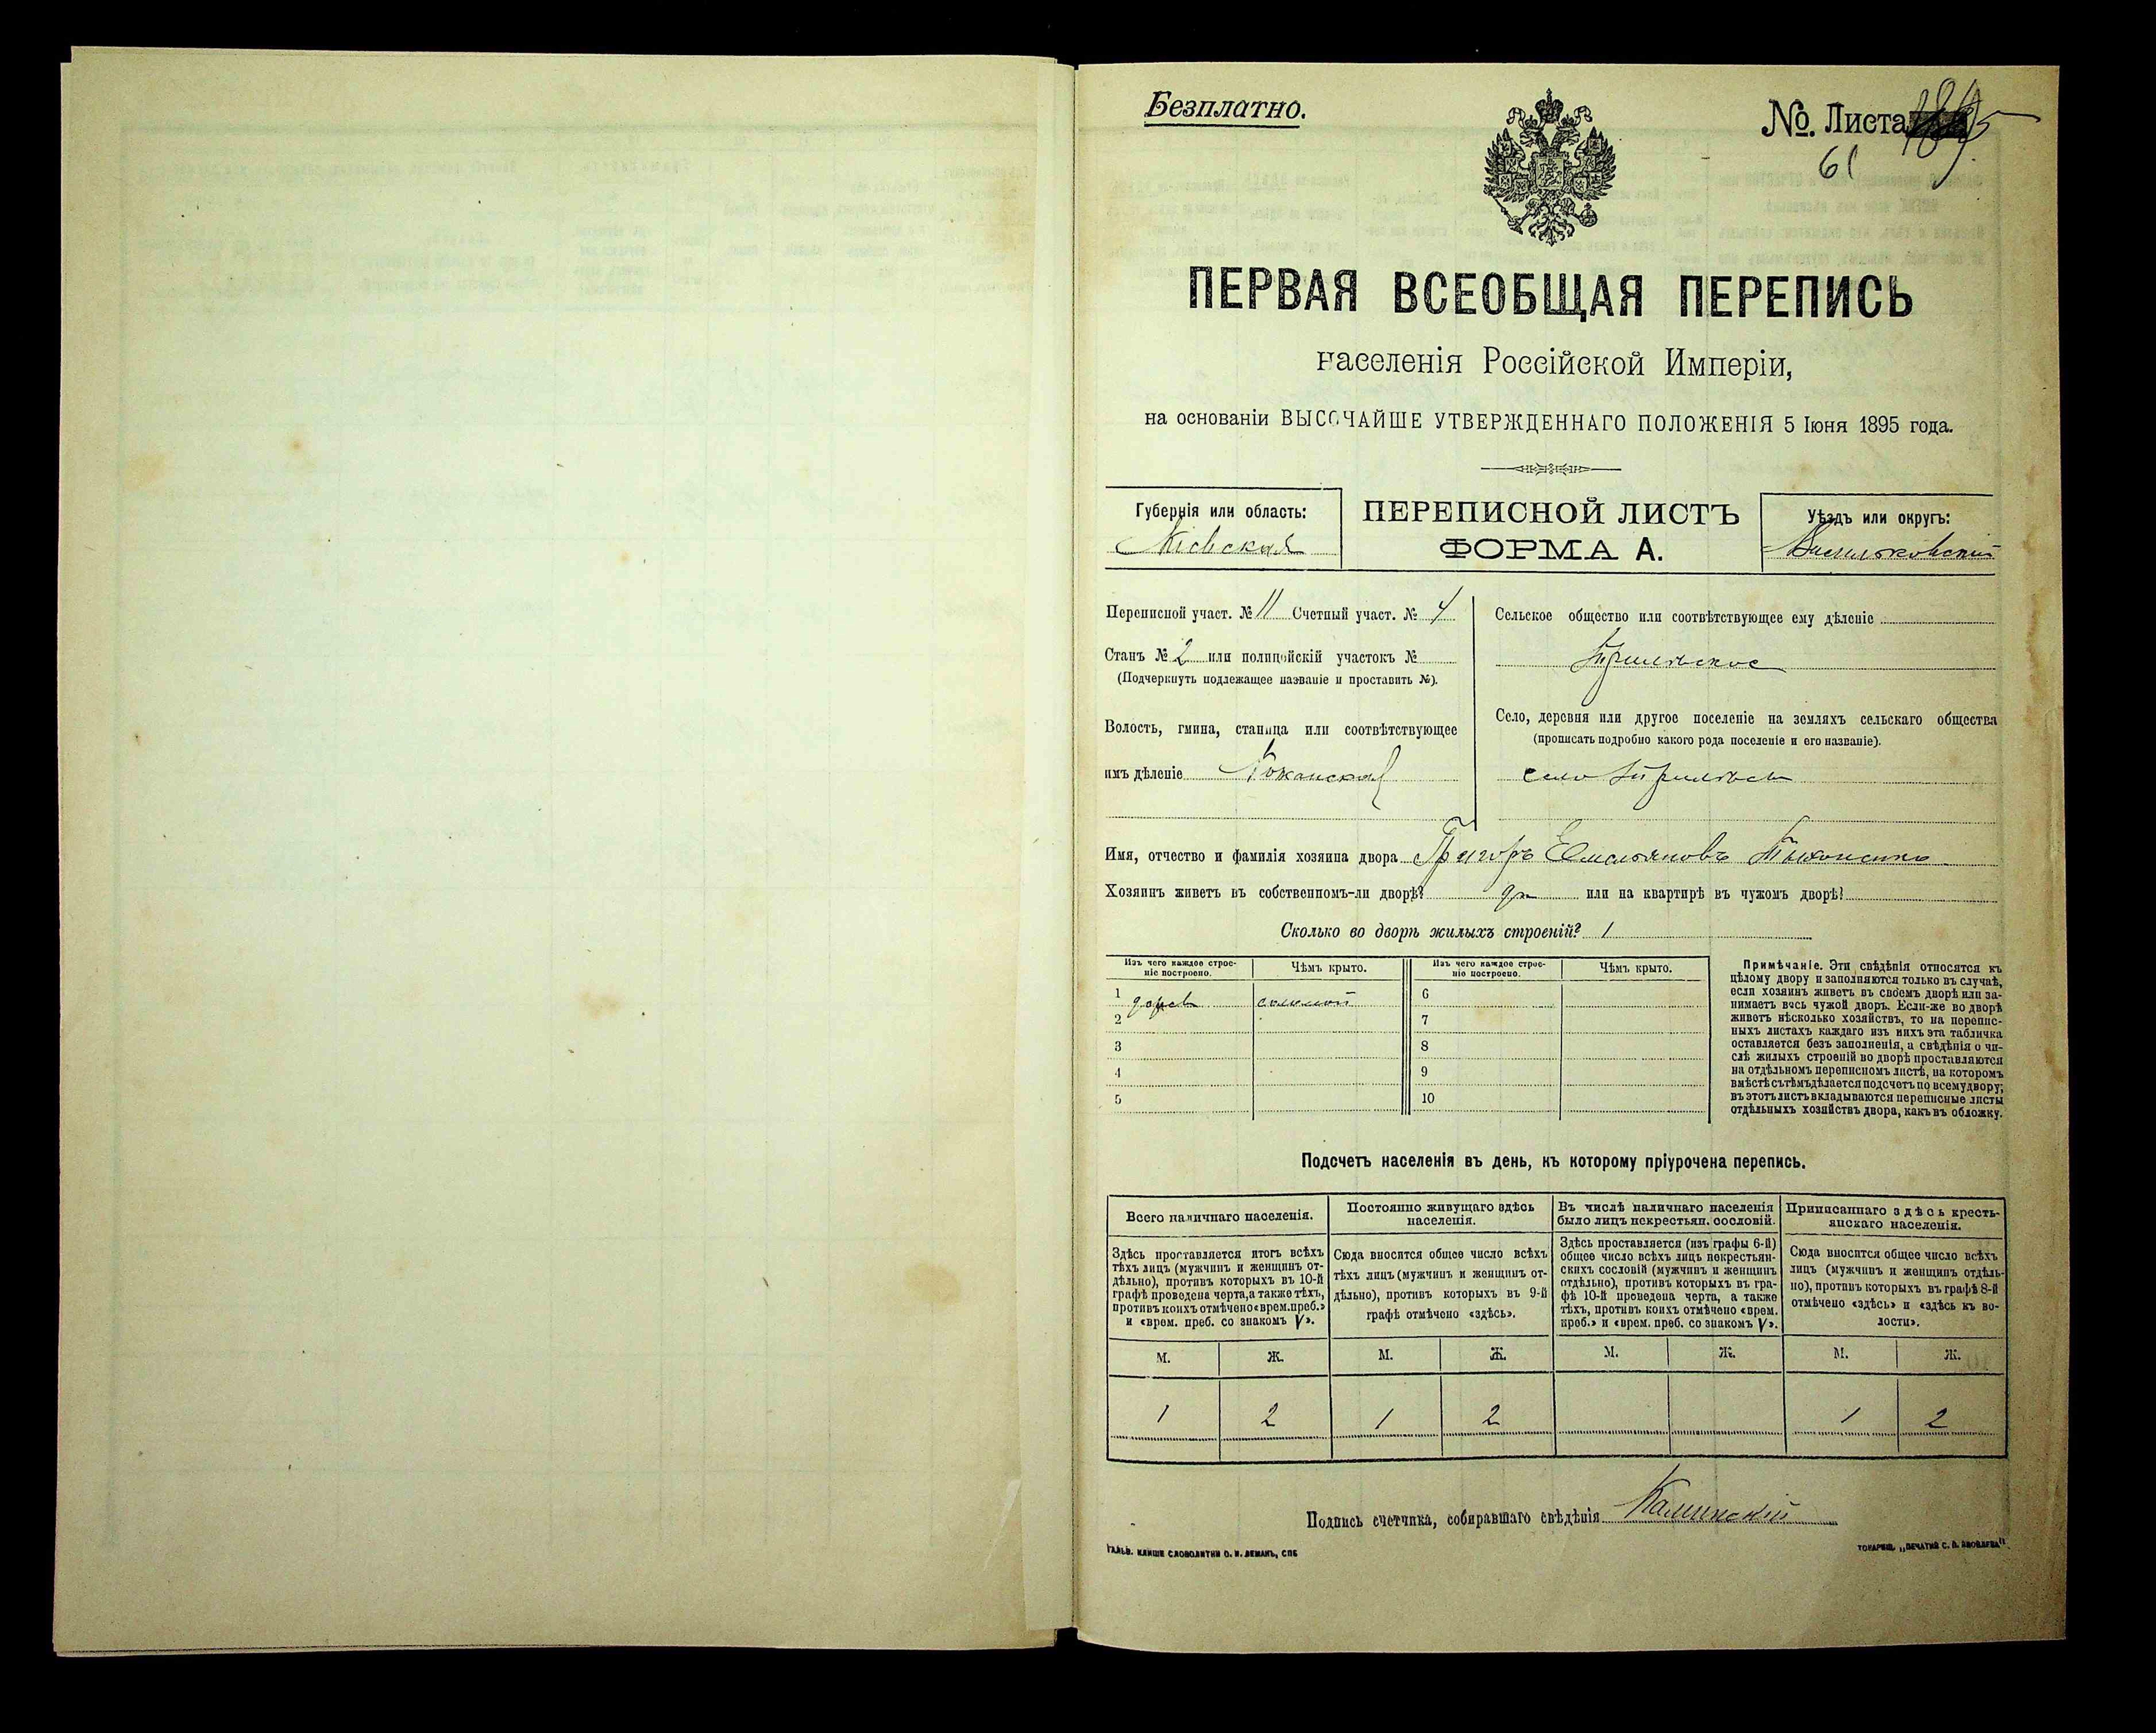 Безплатно.
№. Листа
61
ПЕРВАЯ ВСЕОБЩАЯ ПЕРЕПИСЬ
населенія Россійской Имперіи,
на основаніи ВЫСОЧАЙШЕ УТВЕРЖДЕННАГО ПОЛОЖЕНІЯ 5 Іюня 1895 года.
Губернія или область:
Кіевская
ПЕРЕПИСНОЙ ЛИСТЪ
ФОРМА А.
Уѣздъ или округъ:
Васильковскій
Переписной участ. № 11 Счетный участ. № 4
Станъ № 2 или полицейскій участокъ №
(Подчеркнуть подлежащее названіе и проставить №).
Волость, гмина, станица или соотвѣтствующее
имъ дѣленіе Кожанская
Сельское общество или соотвѣтствующее ему дѣленіе
Село, деревня или другое поселеніе на земляхъ сельскаго общества
(прописать подробно какого рода поселеніе и его названіе).
село
Имя, отчество и фамилія хозяина двора Григоръ Емельяновъ
Хозяинъ живетъ въ собственномъ-ли дворѣ? да или на квартирѣ въ чужомъ дворѣ?
Сколько во дворѣ жилыхъ строеній? 1
Изъ чего каждое строе-
ніе построено.
Чѣмъ крыто.
Изъ чего каждое строе-
ніе построено.
Чѣмъ крыто.
1 дерев соломой 6
2 7
3 8
4 9
5 10
Примѣчаніе. Эти свѣдѣнія относятся къ
цѣлому двору и заполняются только въ случаѣ,
если хозяинъ живетъ въ своемъ дворѣ или за-
нимаетъ весь чужой дворъ. Если-же во дворѣ
живетъ нѣсколько хозяйствъ, то на перепис-
ныхъ листахъ каждаго изъ нихъ эта табличка
оставляется безъ заполненія, а свѣдѣнія о чи-
слѣ жилыхъ строеній во дворѣ проставляются
на отдѣльномъ переписномъ листѣ, на которомъ
вмѣстѣ съ тѣмъ дѣлается подсчетъ по всему двору;
въ этотъ листъ вкладываются переписные листы
отдѣльныхъ хозяйствъ двора, какъ въ обложку.
Подсчетъ населенія въ день, къ которому пріурочена перепись.
Всего наличнаго населенія.
Здѣсь проставляется итогъ всѣхъ
тѣхъ лицъ (мужчинъ и женщинъ от-
дѣльно), противъ которыхъ въ 10-й
графѣ проведена черта, а также тѣхъ,
противъ коихъ отмѣчено «врем. преб.»
и «врем. преб. со знакомъ V».
Постоянно живущаго здѣсь
населенія.
Сюда вносится общее число всѣхъ
тѣхъ лицъ (мужчинъ и женщинъ от-
дѣльно), противъ которыхъ въ 9-й
графѣ отмѣчено «здѣсь».
Въ числѣ наличнаго населенія
было лицъ некрестьян. сословій.
Здѣсь проставляется (изъ графы 6-й)
общее число всѣхъ лицъ некрестьян-
скихъ сословій (мужчинъ и женщинъ
отдѣльно), противъ которыхъ въ гра-
фѣ 10-й проведена черта, а также
тѣхъ, противъ коихъ отмѣчено «врем.
преб.» и «врем. преб. со знакомъ V».
Приписаннаго здѣсь кресть-
янскаго населенія.
Сюда вносится общее число всѣхъ
лицъ (мужчинъ и женщинъ отдѣль-
но), противъ которыхъ въ графѣ 8-й
отмѣчено «здѣсь» и «здѣсь къ во-
лости».
М. Ж. М. Ж. М. Ж. М. Ж.
1 2 1 2 1 2
Подпись счетчика, собиравшаго свѣдѣнія Калинскій
ГАЛЬВ. КЛИШЕ СЛОВОЛИТНИ О. И. ЛЕМАНЪ, СПБ
ТОВАРИЩ. „ПЕЧАТНЯ С. П. ЯКОВЛЕВА"